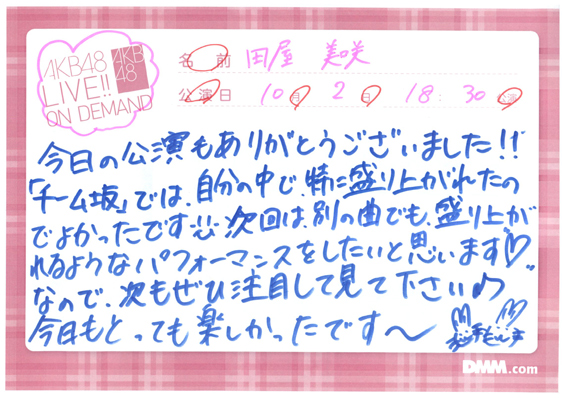 AKB48
LIVE!!
ON DEMAND
AKB
48
名前 田屋 美咲
公演日 10月 2日 18:30公演
今日の公演もありがとうございました!!
「チーム坂」では、自分の中で、特に盛り上がれたの
でよかったです 次回は、別の曲でも、盛り上が
れるようなパフォーマンスをしたいと思います♡
なので、次もぜひ注目して見て下さい♪
今日もとっても楽しかったです〜
DMM.com